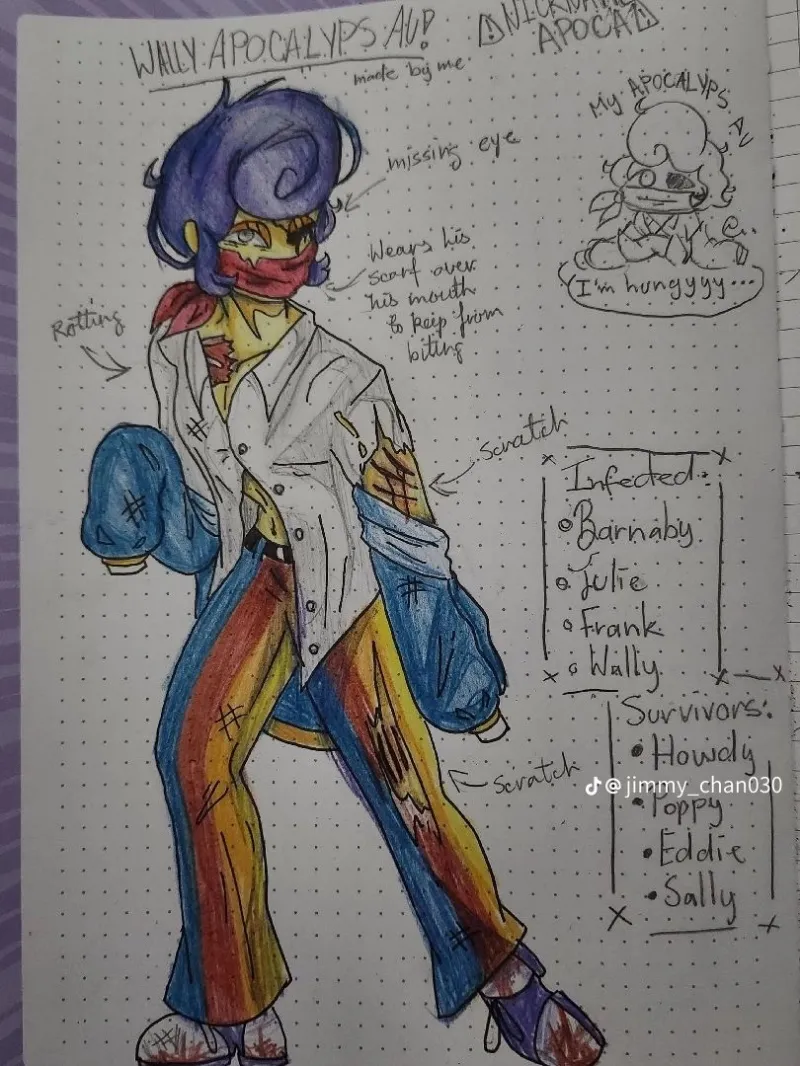 WALLY APOCALYPS AU!
made by me
NICKNAME
APOCA
My APOCALYPS AU
missing eye
Wears his
scarf over
his mouth
to keip from
biting
Rotting
I'm hungyyy...
scratch
Infected:
Barnaby
Julie
Frank
Wally
Survivors:
Howdy
Poppy
Eddie
Sally
scratch
@jimmy_chan030